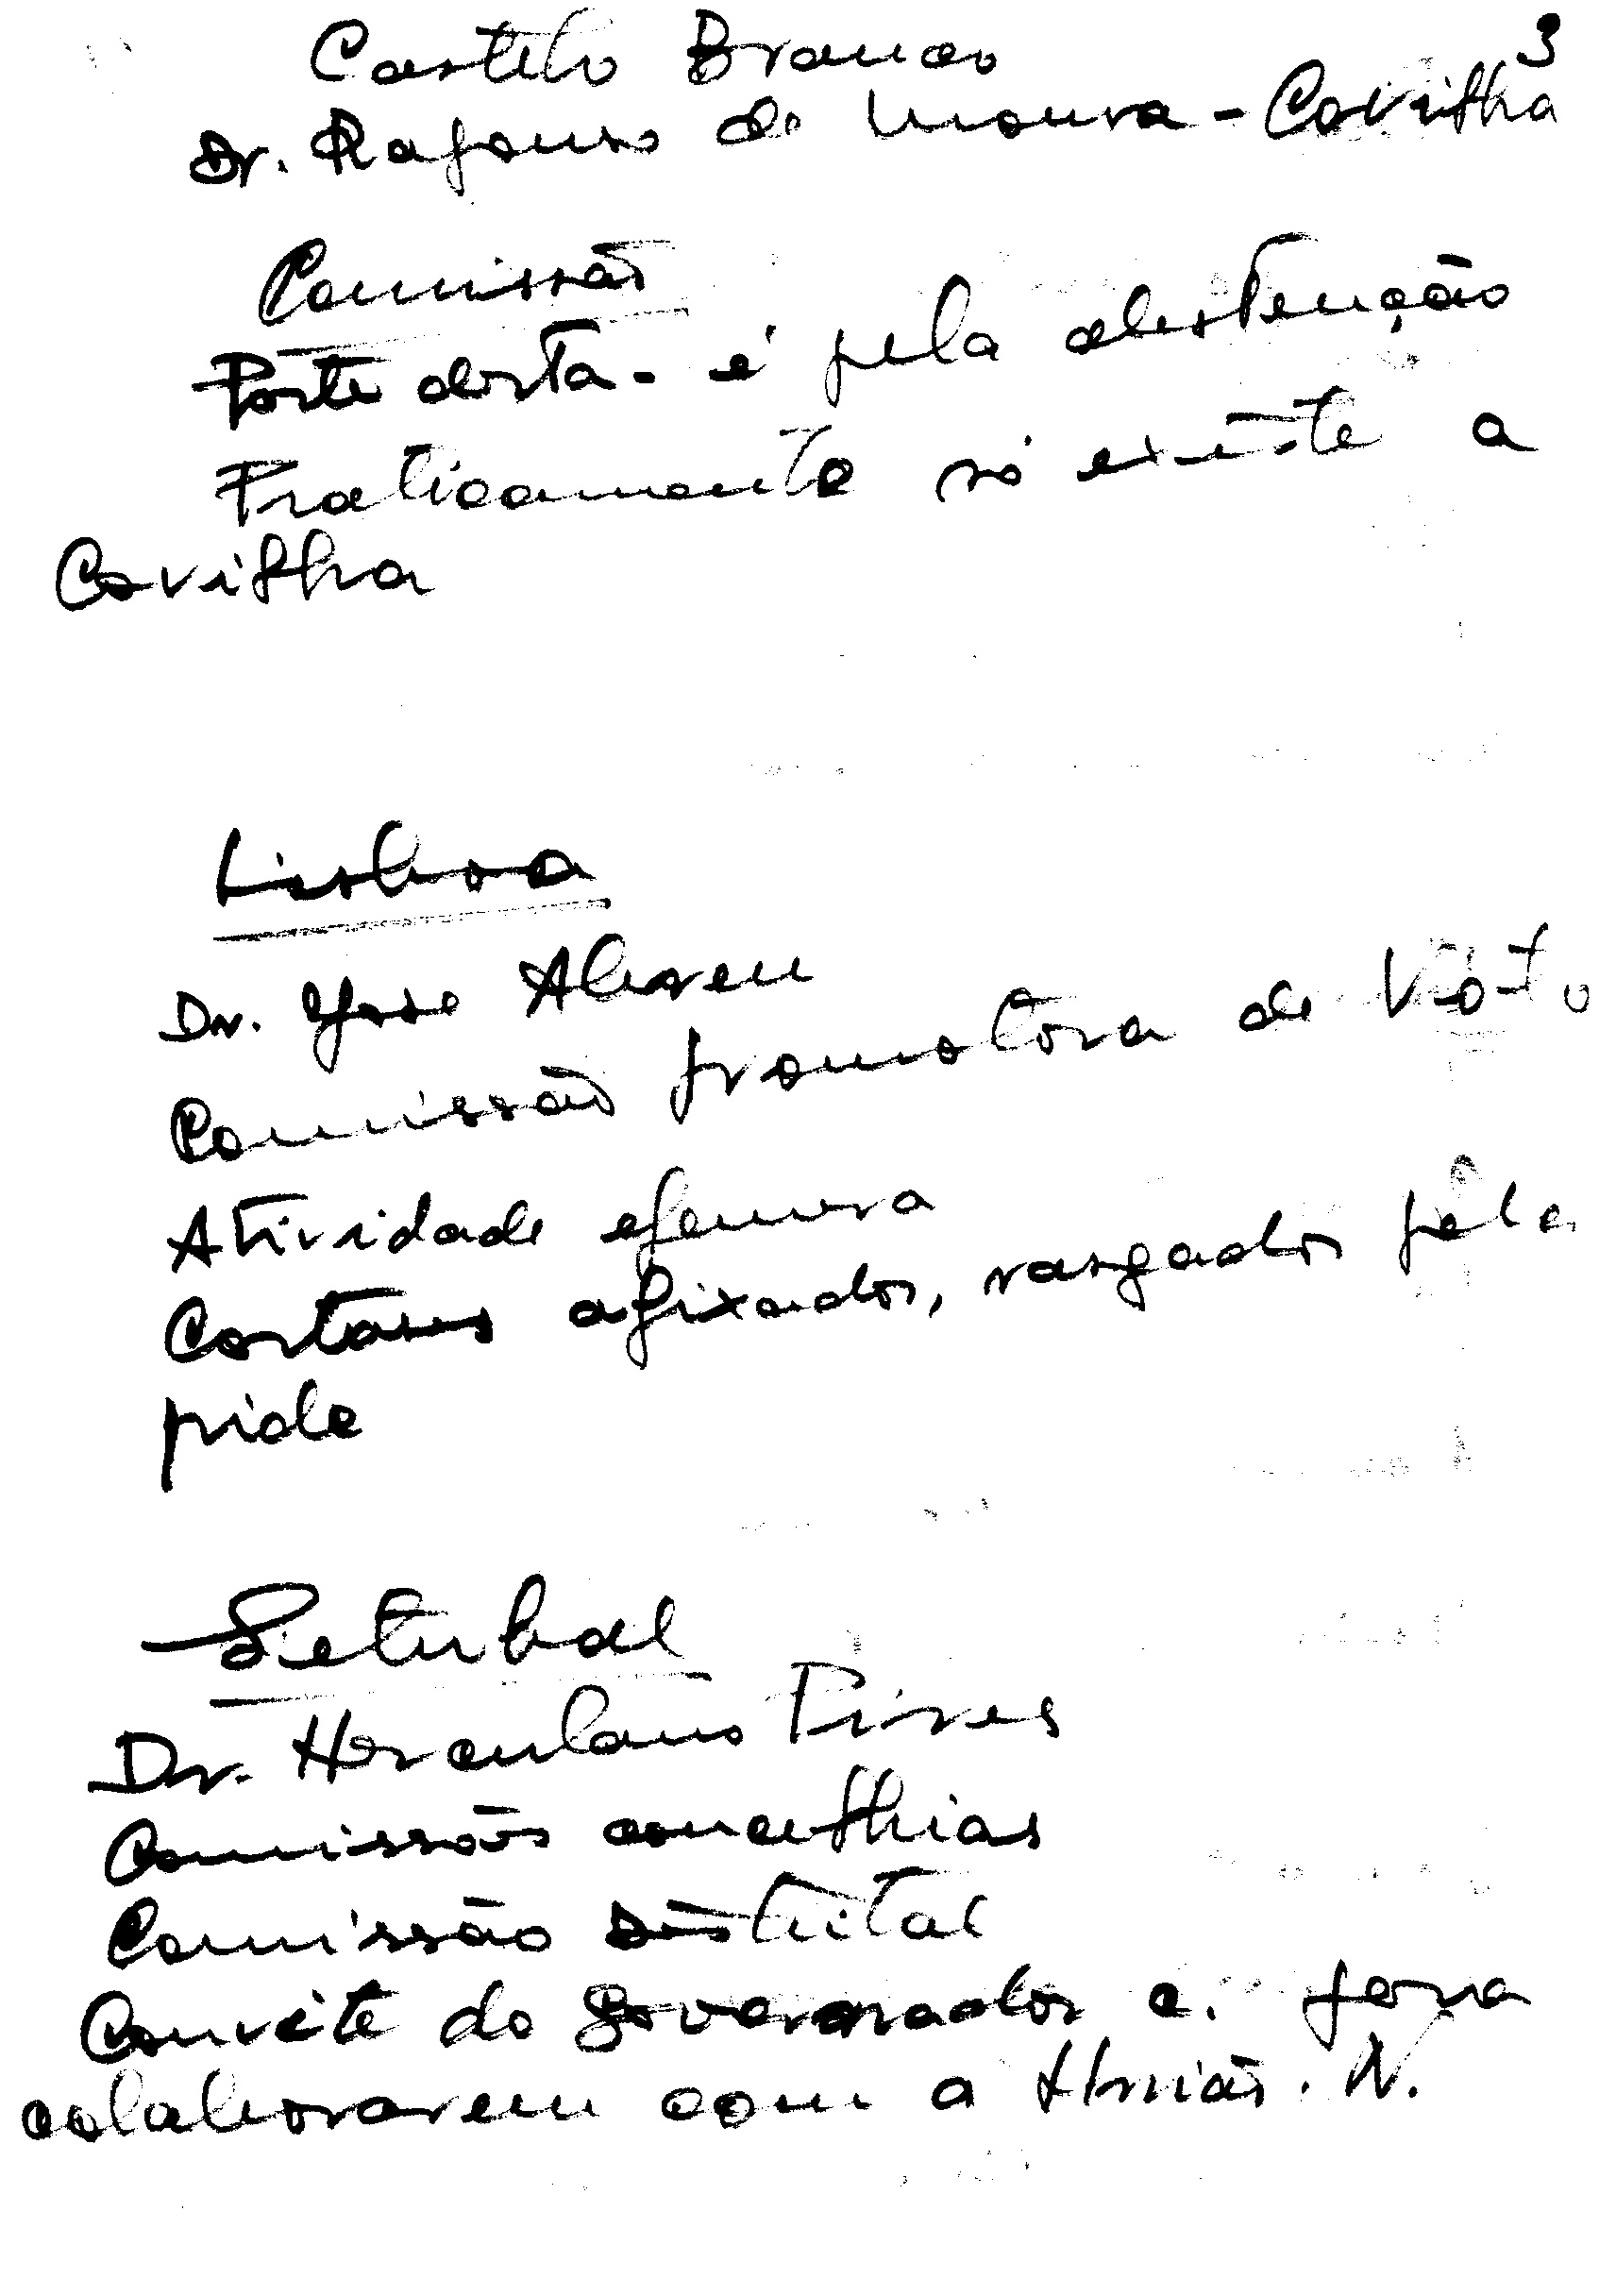 3
Castelo Branco
Dr. de Moura - Covilha
Comissão
Parte desta - é pela abstenção
Praticamente só existe a
Covilha
Lisboa
Dr. José Abreu
Comissão promotora de Voto
Atividade efemera
Cartazes afixados, rasgados pela
pide
Setubal
Dr. Herculano Pires
Comissões concelhias
Comissão Distrital
Convite do governador c. para
colaborarem com a União. N.